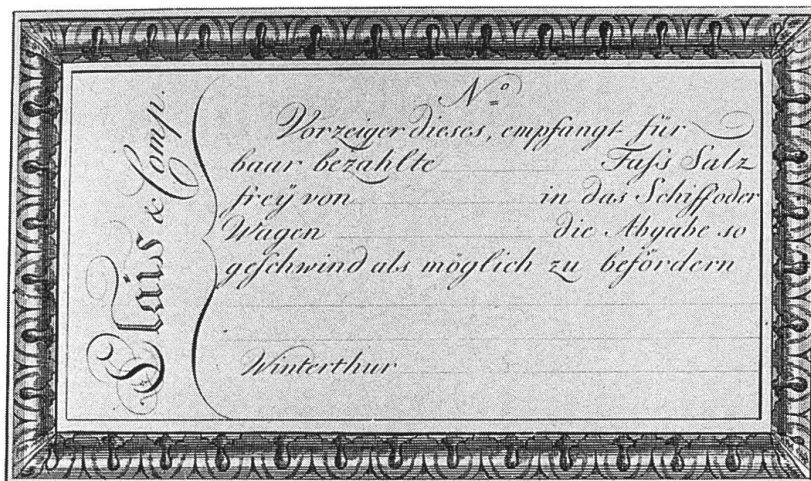 Clais & Comp.
No
Vorzeiger dieses, empfangt für
baar bezahlte Fass Salz
freÿ von in das Schiff oder
Wagen die Abgabe so
geschwind als möglich zu befördern
Winterthur